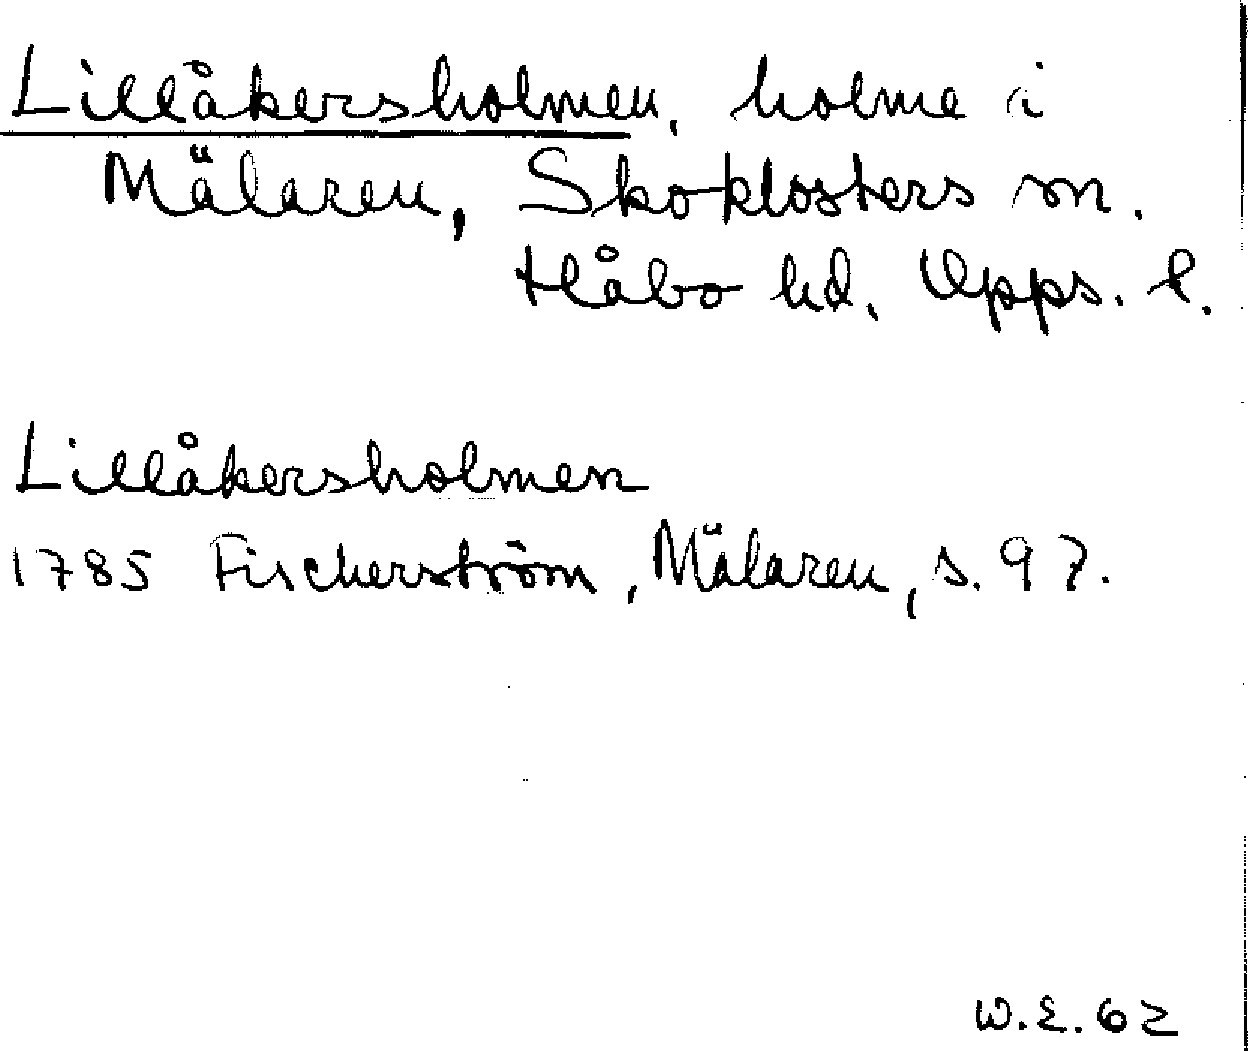 Lillåkersholmen, holme i
Mälaren, Skoklosters sn.
Håbo hd. Upps. l.
Lillåkersholmen
1785 Fischerström, Mälaren, s. 97.
W.E. 62